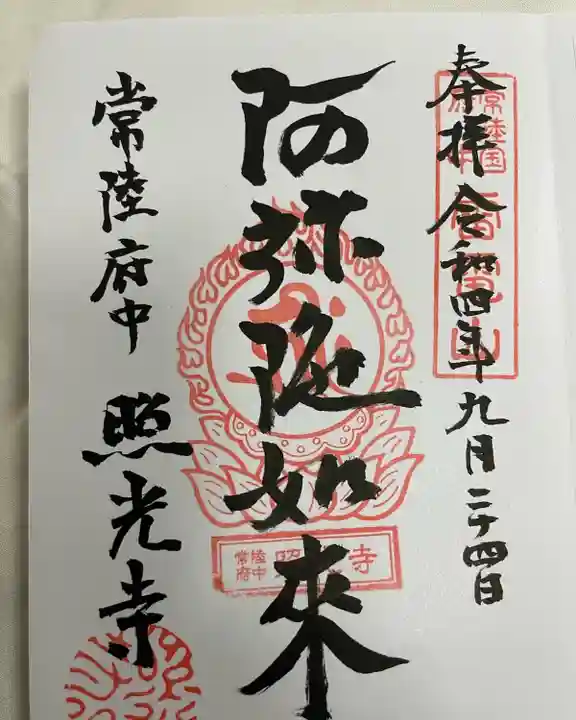 奉拝 令和四年九月二十四日
常陸国
阿弥陀如來
常陸府中
寺
常陸府中 照光寺